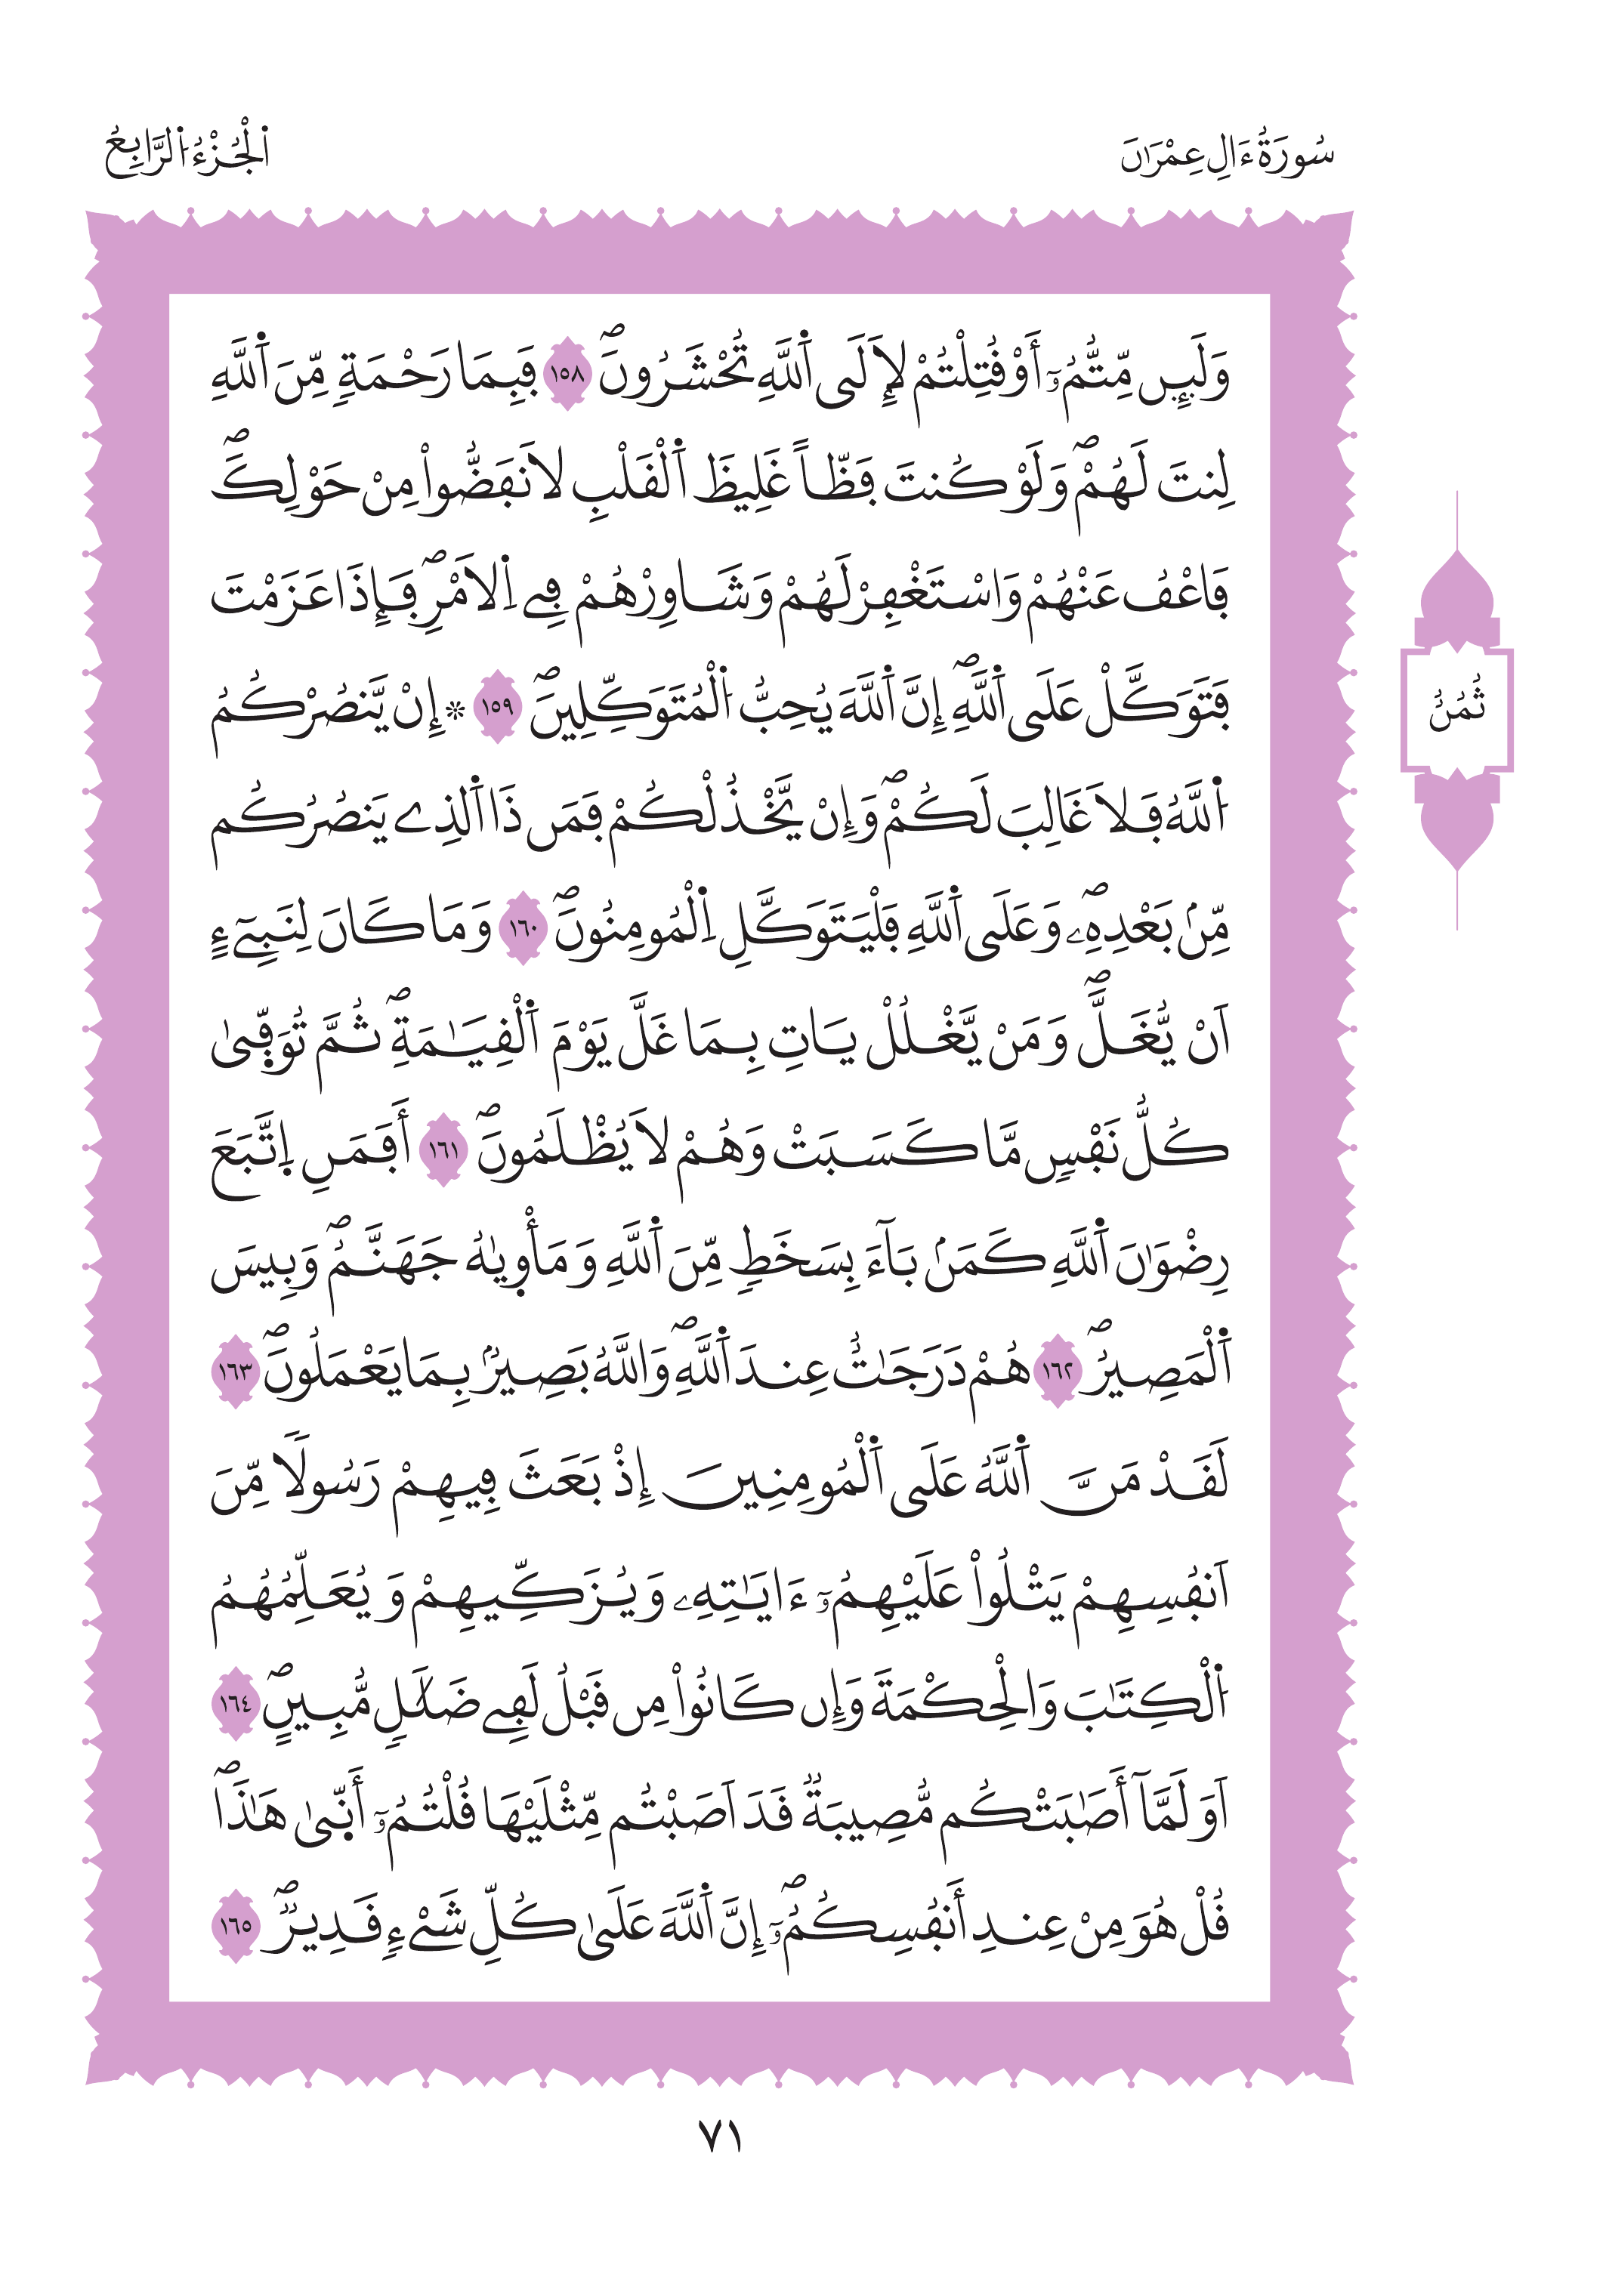 سُورَةُ ءَالِ عِمْرَٰنَ
اُ۬لْجُزْءُ اُ۬لرَّابِعُ
وَلَئِن مِّتُّمُۥٓ أَوْ قُتِلْتُمْ لَإِلَى اَ۬للَّهِ تُحْشَرُونَۖ ١٥٨ فَبِمَا رَحْمَةٖ مِّنَ اَ۬للَّهِ
لِنتَ لَهُمْۖ وَلَوْ كُنتَ فَظّاً غَلِيظَ اَ۬لْقَلْبِ لَانفَضُّواْ مِنْ حَوْلِكَۖ
فَاعْفُ عَنْهُمْ وَاسْتَغْفِرْ لَهُمْ وَشَاوِرْهُمْ فِے اِ۬لَامْرِۖ فَإِذَا عَزَمْتَ
فَتَوَكَّلْ عَلَى اَ۬للَّهِۖ إِنَّ اَ۬للَّهَ يُحِبُّ اُ۬لْمُتَوَكِّلِينَۖ ١٥٩ ۞ إِنْ يَّنصُرْكُمُ
اُ۬للَّهُ فَلَا غَالِبَ لَكُمْۖ وَإِنْ يَّخْذُلْكُمْ فَمَن ذَا اَ۬لذِے يَنصُرُكُم
مِّنۢ بَعْدِهِۦۖ وَعَلَى اَ۬للَّهِ فَلْيَتَوَكَّلِ اِ۬لْمُومِنُونَۖ ١٦٠ وَمَا كَانَ لِنَبِيٓءٍ
اَنْ يُّغَلَّۖ وَمَنْ يَّغْلُلْ يَاتِ بِمَا غَلَّ يَوْمَ اَ۬لْقِيَٰمَةِۖ ثُمَّ تُوَفّ۪ىٰ
كُلُّ نَفْسٖ مَّا كَسَبَتْ وَهُمْ لَا يُظْلَمُونَۖ ١٦١ أَفَمَنِ اِ۪تَّبَعَ
رِضْوَٰنَ اَ۬للَّهِ كَمَنۢ بَآءَ بِسَخَطٖ مِّنَ اَ۬للَّهِ وَمَأْو۪يٰهُ جَهَنَّمُۖ وَبِيسَ
اَ۬لْمَصِيرُۖ ١٦٢ هُمْ دَرَجَٰتٌ عِندَ اَ۬للَّهِۖ وَاللَّهُ بَصِيرُۢ بِمَا يَعْمَلُونَۖ ١٦٣
لَقَدْ مَنَّ اَ۬للَّهُ عَلَى اَ۬لْمُومِنِينَ إِذْ بَعَثَ فِيهِمْ رَسُولاٗ مِّنَ
اَنفُسِهِمْ يَتْلُواْ عَلَيْهِمُۥٓ ءَايَٰتِهِۦ وَيُزَكِّيهِمْ وَيُعَلِّمُهُمُ
اُ۬لْكِتَٰبَ وَالْحِكْمَةَ وَإِن كَانُواْ مِن قَبْلُ لَفِے ضَلَٰلٖ مُّبِينٍۖ ١٦٤
اَوَلَمَّآ أَصَٰبَتْكُم مُّصِيبَةٞ قَدَ اَصَبْتُم مِّثْلَيْهَا قُلْتُمُۥٓ أَنّ۪ىٰ هَٰذَاۖ
قُلْ هُوَ مِنْ عِندِ أَنفُسِكُمُۥٓۖ إِنَّ اَ۬للَّهَ عَلَىٰ كُلِّ شَےْءٖ قَدِيرٞۖ ١٦٥
ثُمُنُ
٧١